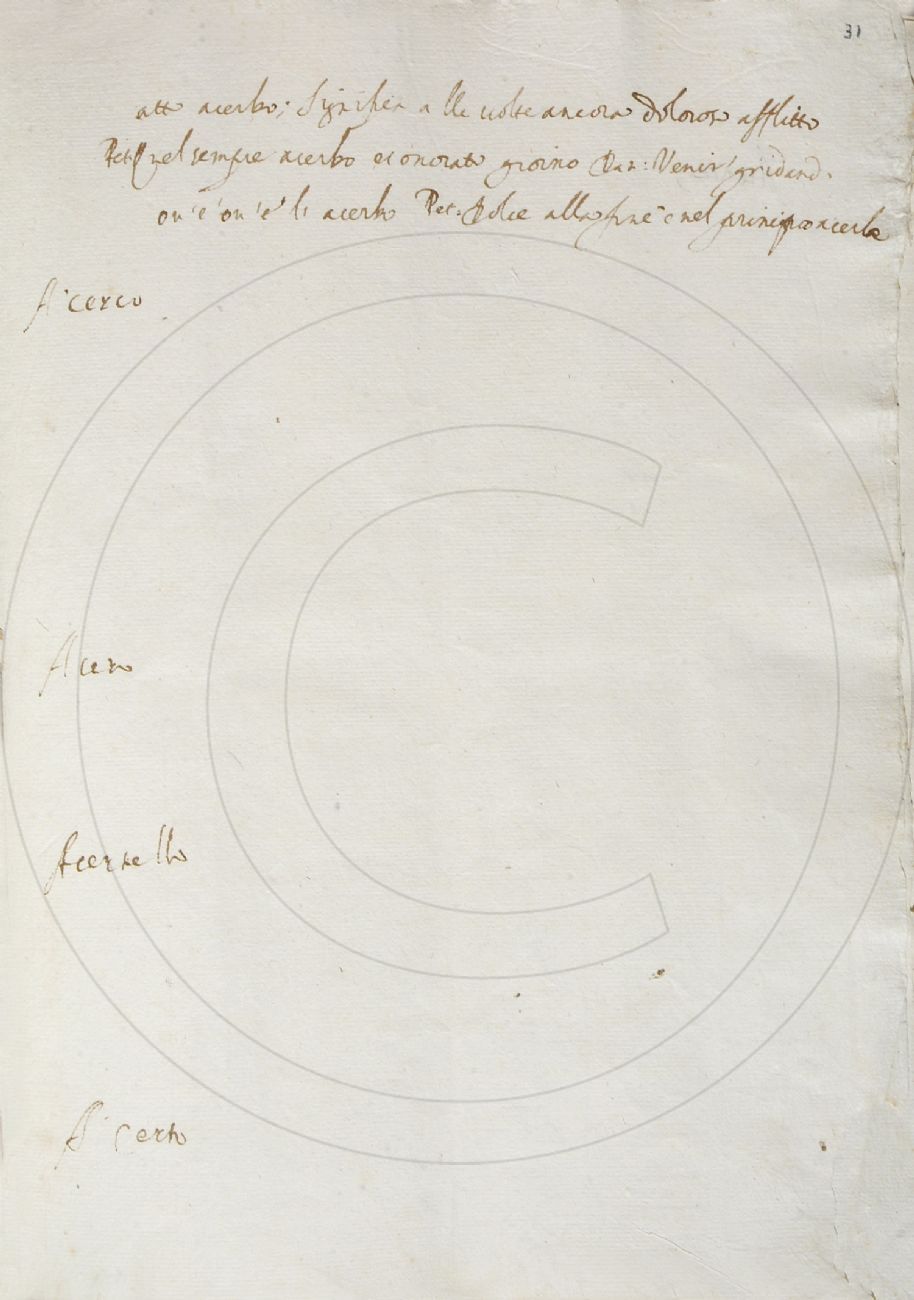 31
atto acerbo; Significa alle volte ancora doloroso afflitto
Pet. quel sempre acerbo et onorato giorno Dan: Venir gridand.
ou'è ou'è l'acerbo Pet. Dolce alla fine e nel principio acerba
A' cerco
Acero
A' certo